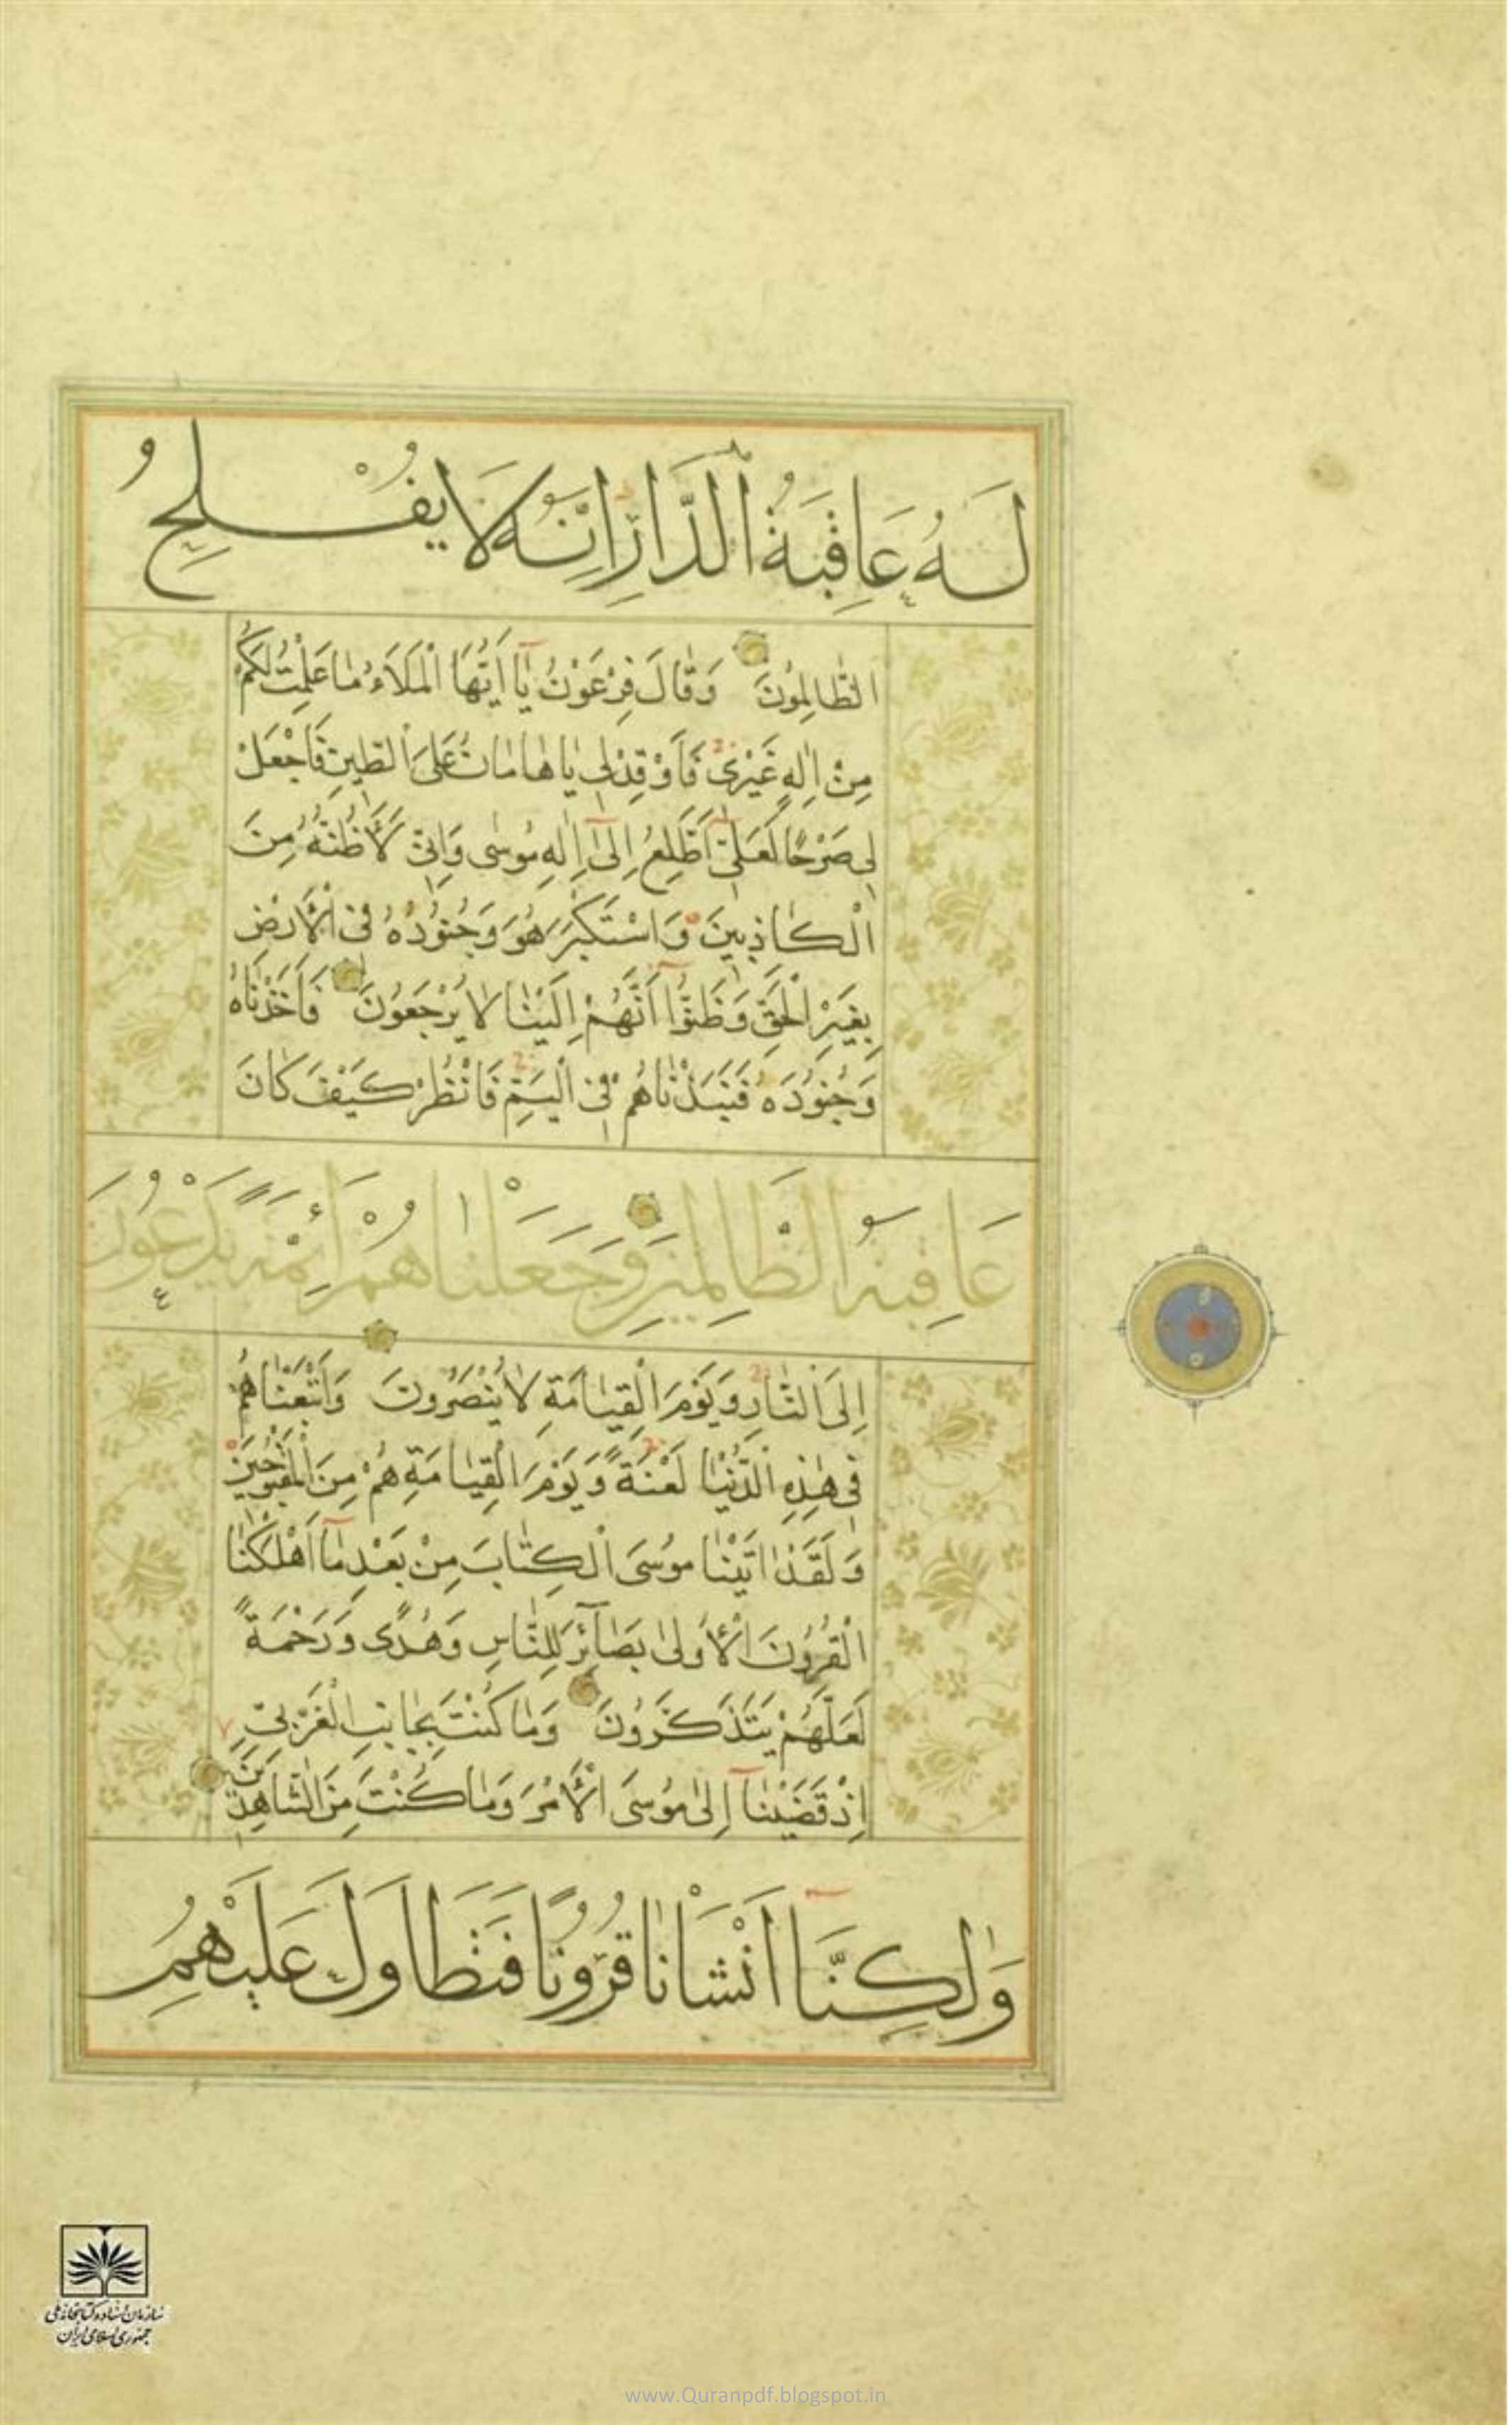 لَهُ عَاقِبَةُ ٱلدَّارِ اِنَّهُ لَا يُفْلِحُ
الظَّالِمُونَ وَقَالَ فِرْعَوْنُ يَا اَيُّهَا الْمَلَاُ مَا عَلِمْتُ لَكُمْ
مِنْ اِلٰهٍ غَيْرِى فَاَوْقِدْ لِى يَا هَامَانُ عَلَى الطِّينِ فَاجْعَلْ
لِى صَرْحًا لَعَلِّىٓ اَطَّلِعُ اِلٰٓى اِلٰهِ مُوسٰى وَاِنِّى لَاَظُنُّهُ مِنَ
الْكَاذِبِينَ وَاسْتَكْبَرَ هُوَ وَجُنُودُهُ فِى الْاَرْضِ
بِغَيْرِ الْحَقِّ وَظَنُّوٓا اَنَّهُمْ اِلَيْنَا لَا يُرْجَعُونَ فَاَخَذْنَاهُ
وَجُنُودَهُ فَنَبَذْنَاهُمْ فِى الْيَمِّ فَانْظُرْ كَيْفَ كَانَ
عَاقِبَةُ الظَّالِمِينَ وَجَعَلْنَاهُمْ اَئِمَّةً يَدْعُونَ
اِلَى النَّارِ وَيَوْمَ الْقِيَامَةِ لَا يُنْصَرُونَ وَاَتْبَعْنَاهُمْ
فِى هٰذِهِ الدُّنْيَا لَعْنَةً وَيَوْمَ الْقِيَامَةِ هُمْ مِنَ الْمَقْبُوحِينَ
وَلَقَدْ اٰتَيْنَا مُوسَى الْكِتَابَ مِنْ بَعْدِ مَآ اَهْلَكْنَا
الْقُرُونَ الْاُولٰى بَصَآئِرَ لِلنَّاسِ وَهُدًى وَرَحْمَةً
لَعَلَّهُمْ يَتَذَكَّرُونَ وَمَا كُنْتَ بِجَانِبِ الْغَرْبِىِّ
اِذْ قَضَيْنَآ اِلٰى مُوسَى الْاَمْرَ وَمَا كُنْتَ مِنَ الشَّاهِدِينَ
وَلٰكِنَّآ اَنْشَاْنَا قُرُونًا فَتَطَاوَلَ عَلَيْهِمُ
سازمان اسناد و کتابخانه ملی
جمهوری اسلامی ایران
www.Quranpdf.blogspot.in